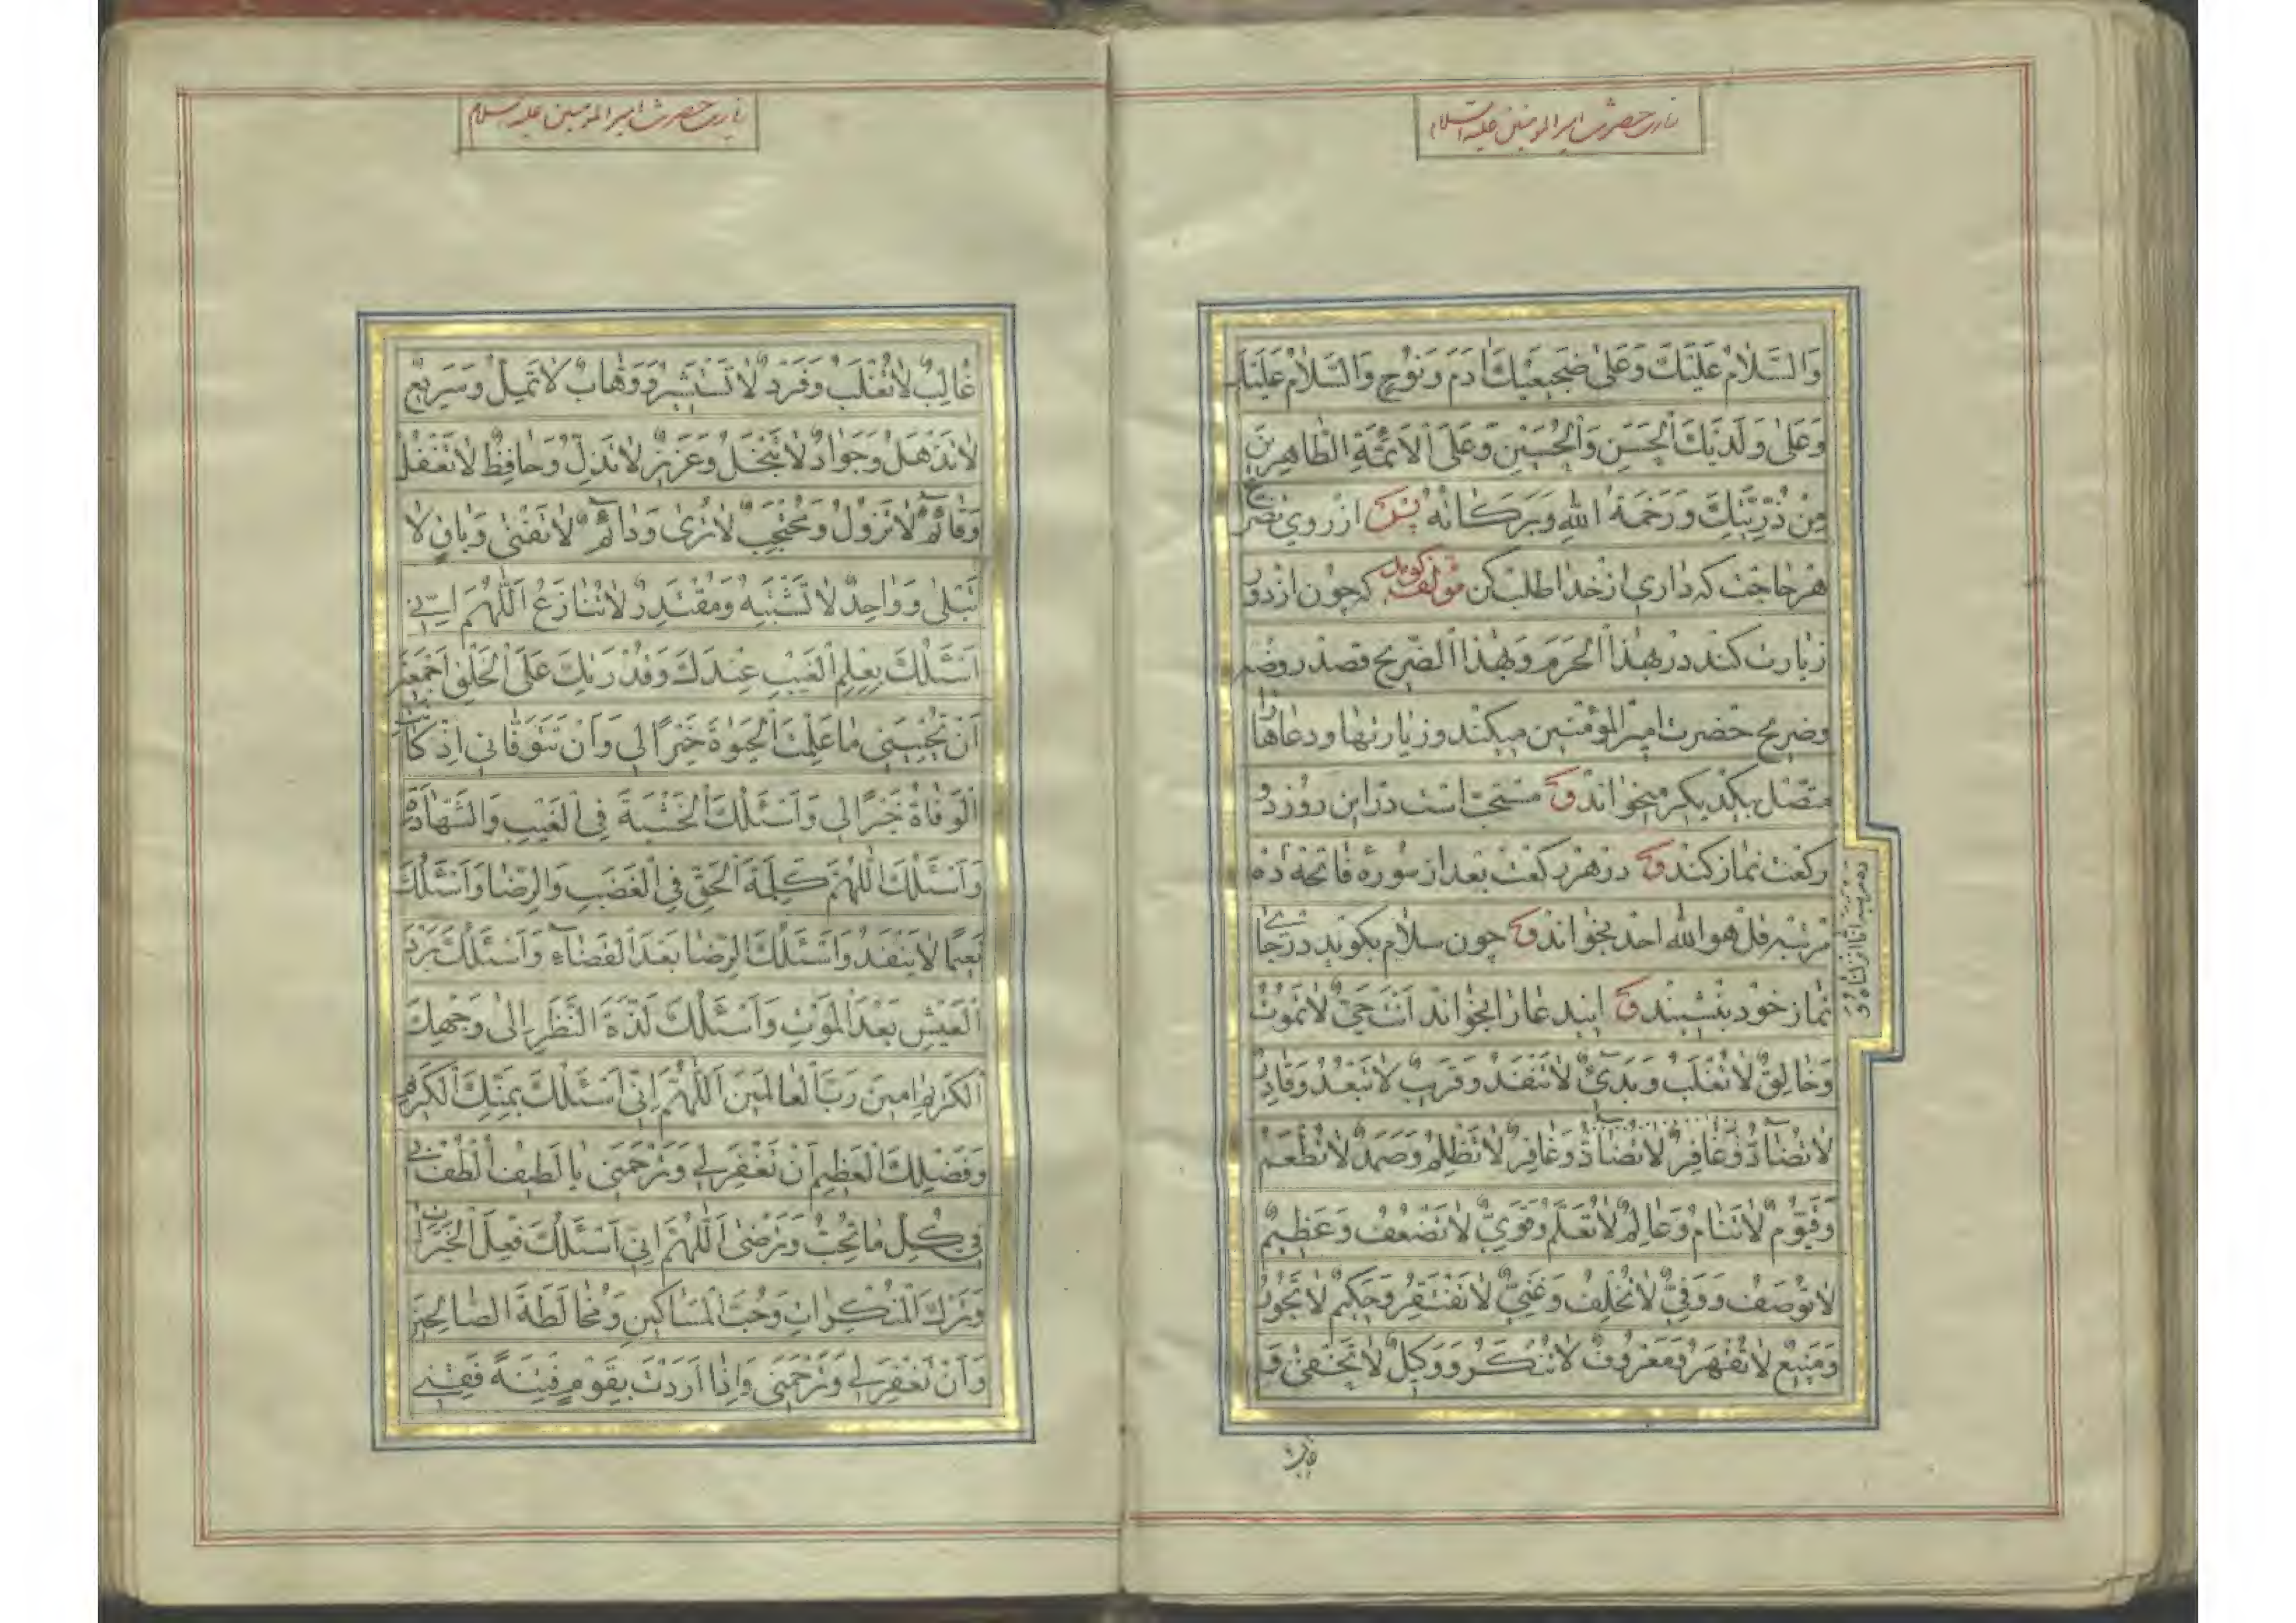 زیارت حضرت امیر المومنین علیه السلام
وَالسَّلامُ عَلَيْكَ وَعَلىٰ ضَجيعَيْكَ ادَمَ وَنُوْحٍ وَالسَّلامُ عَلَيْكَ
وَعَلىٰ وَلَدَيْكَ الْحَسَنِ وَالْحُسَيْنِ وَعَلَى الْاَئِمَّةِ الطّاهِرينَ
مِنْ ذُرِّيَّتِكَ وَرَحْمَةُ اللهِ وَبَرَكاتُهُ پس از روي تضرع
هر حاجت كه داري از خدا طلب كن مؤلف گوید كه چون از دور
زيارت كند در بهذا الحرم وبهذا الضريح قصد روضه
وضريح حضرت امير المؤمنين ميكند وزيارتها ودعاها را
متصل بكديكر ميخواند و مستحب است در اين روز دو
ركعت نماز كند و در هر ركعت بعد از سوره فاتحه ده
مرتبه قل هو الله احد بخواند و چون سلام بكويد در جاي
نماز خود بنشيند و ايندعا را بخواند اَنْتَ حَيٌّ لا تَمُوْتُ
وَخالِقٌ لا تُغْلَبُ وَبَدِيٌ لا تَنْفَدُ وَقَريبٌ لا تَبْعُدُ وَقادِرٌ
لا تُضادُّ وَغافِرٌ لا تُضادُّ وَغافِرٌ لا تَظْلِمُ وَصَمَدٌ لا تُطْعَمُ
وَقَيُّومٌ لا تَنامُ وَعالِمٌ لا تُعَلَّمُ وَقَوِيٌّ لا تَضْعُفُ وَعَظيمٌ
لا تُوْصَفُ وَوَفِيٌّ لا تُخْلِفُ وَغَنِيٌّ لا تَفْتَقِرُ وَحَكيمٌ لا تَجُورُ
وَمَنيعٌ لا تُقْهَرُ وَمَعْرُوفٌ لا تُنْكَرُ وَوَكيلٌ لا تَخْفىٰ وَ
ده مرتبه انا انزلناه و
غالب
زیارت حضرت امیر المومنین علیه السلام
غالِبٌ لا تُغْلَبُ وَفَرْدٌ لا تَسْتَشيرُ وَوَهّابٌ لا تَميلُ وَسَريعٌ
لا تَذْهَلُ وَجَوادٌ لا تَبْخَلُ وَعَزيزٌ لا تَذِلُّ وَحافِظٌ لا تَغْفَلُ
وَقائِمٌ لا تَزُولُ وَمُحْتَجِبٌ لا تُرىٰ وَدائِمٌ لا تَفْنىٰ وَباقٍ لا
تَبْلىٰ وَواحِدٌ لا تَشْتَبِهُ وَمُقْتَدِرٌ لا تُنازَعُ اَللّٰهُمَّ اِنّي
اَسْئَلُكَ بِعِلْمِ الْغَيْبِ عِنْدَكَ وَقُدْرَتِكَ عَلَى الْخَلْقِ اَجْمَعينَ
اَنْ تُحْيِيَني ما عَلِمْتَ الْحَيوةَ خَيْرًا لي وَاَنْ تَتَوَفّاني اِذْ كانَتِ
الْوَفاةُ خَيْرًا لي وَاَسْئَلُكَ الْخَشْيَةَ فِي الْغَيْبِ وَالشَّهادَةِ
وَاَسْئَلُكَ اللّٰهُمَّ كَلِمَةَ الْحَقِّ فِي الْغَضَبِ وَالرِّضا وَاَسْئَلُكَ
نَعيمًا لا يَنْفَدُ وَاَسْئَلُكَ الرِّضا بَعْدَ الْقَضآءِ وَاَسْئَلُكَ بَرْدَ
الْعَيْشِ بَعْدَ الْمَوْتِ وَاَسْئَلُكَ لَذَّةَ النَّظَرِ اِلىٰ وَجْهِكَ
الْكَريمِ امينَ رَبَّ الْعالَمينَ اَللّٰهُمَّ اِنّي اَسْئَلُكَ بِمَنِّكَ الْكَريمِ
وَفَضْلِكَ الْعَظيمِ اَنْ تَغْفِرَ لي وَتَرْحَمَني يا لَطيفُ اُلْطُفْ لي
في كُلِّ ما تُحِبُّ وَتَرْضىٰ اَللّٰهُمَّ اِنّي اَسْئَلُكَ فِعْلَ الْخَيْراتِ
وَتَرْكَ الْمُنْكَراتِ وَحُبَّ الْمَساكينِ وَمُخالَطَةَ الصّالِحينَ
وَاَنْ تَغْفِرَ لي وَتَرْحَمَني وَاِذا اَرَدْتَ بِقَوْمٍ فِتْنَةً فَقِني